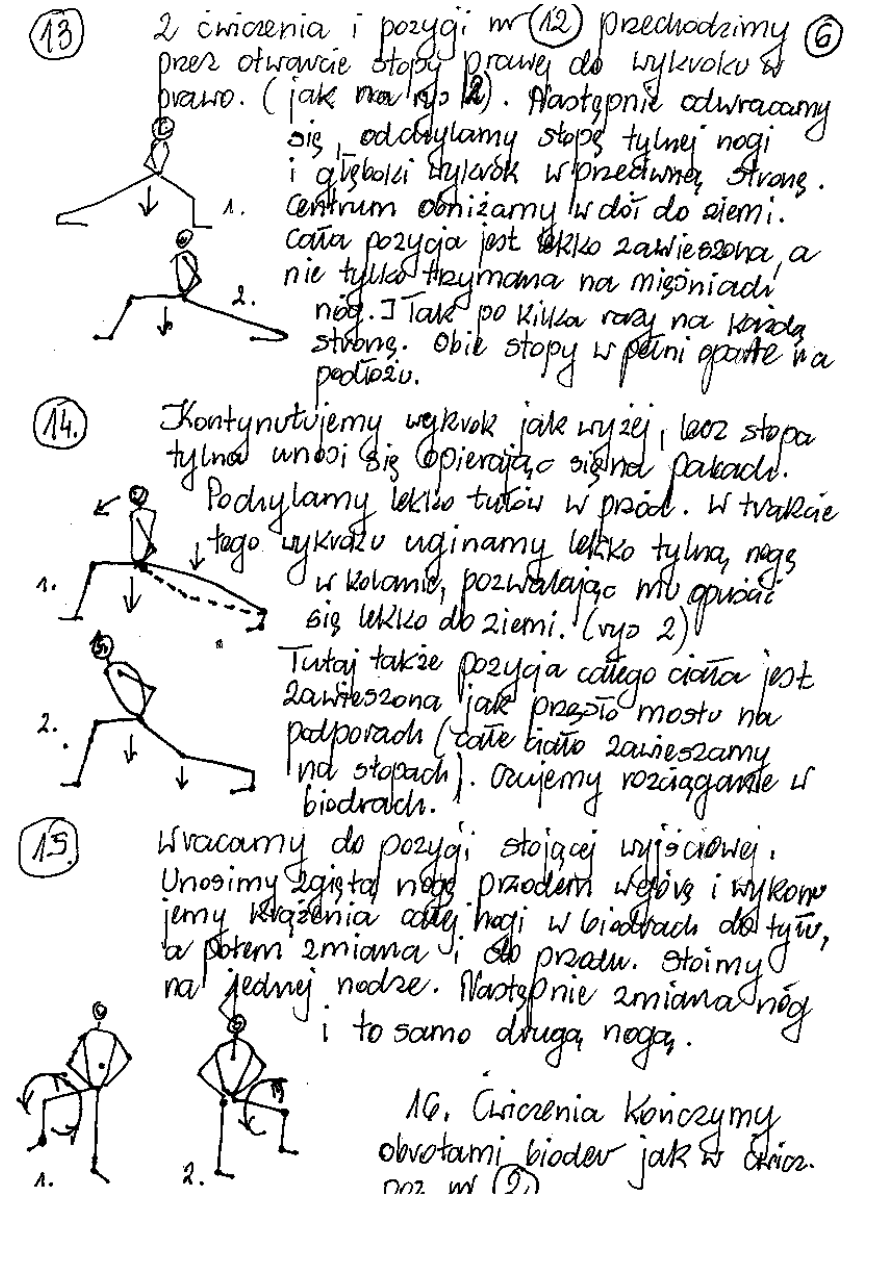 13 2 ćwiczenia i pozycji nr 12 przechodzimy 6
przez otwarcie stopy prawej do wykroku w
prawo. (jak na rys 2). Następnie odwracamy
się, odchylamy stopę tylnej nogi
i głęboki wykrok w przeciwną stronę.
Centrum obniżamy w dół do ziemi.
1.
Cała pozycja jest lekko zawieszona, a
nie tylko trzymana na mięśniach
2.
nóg. I Tak po kilka razy na każdą
stronę. Obie stopy w pełni oparte na
podłożu.
14. Kontynutujemy wykrok jak wyżej, lecz stopa
tylna unosi się opierając się na palcach.
Pochylamy lekko tułów w przód. W trakcie
tego wykroku uginamy lekko tylną nogę
1. w kolanie, pozwalając mu opuścić
się lekko do ziemi. (rys 2)
Tutaj także pozycja całego ciała jest
zawieszona jak przęsło mostu na
2. podporach (całe ciało zawieszamy
na stopach). Czujemy rozciąganie w
biodrach.
15. Wracamy do pozycji stojącej wyjściowej.
Unosimy zgiętą nogę przodem w górę i wykonu
jemy krążenia całej nogi w biodrach do tyłu,
a potem zmiana i do przodu. Stoimy
na jednej nodze. Następnie zmiana nóg
i to samo drugą nogą.
1. 2.
16. Ćwiczenia kończymy
obrotami bioder jak w ćwicz.
poz nr 2